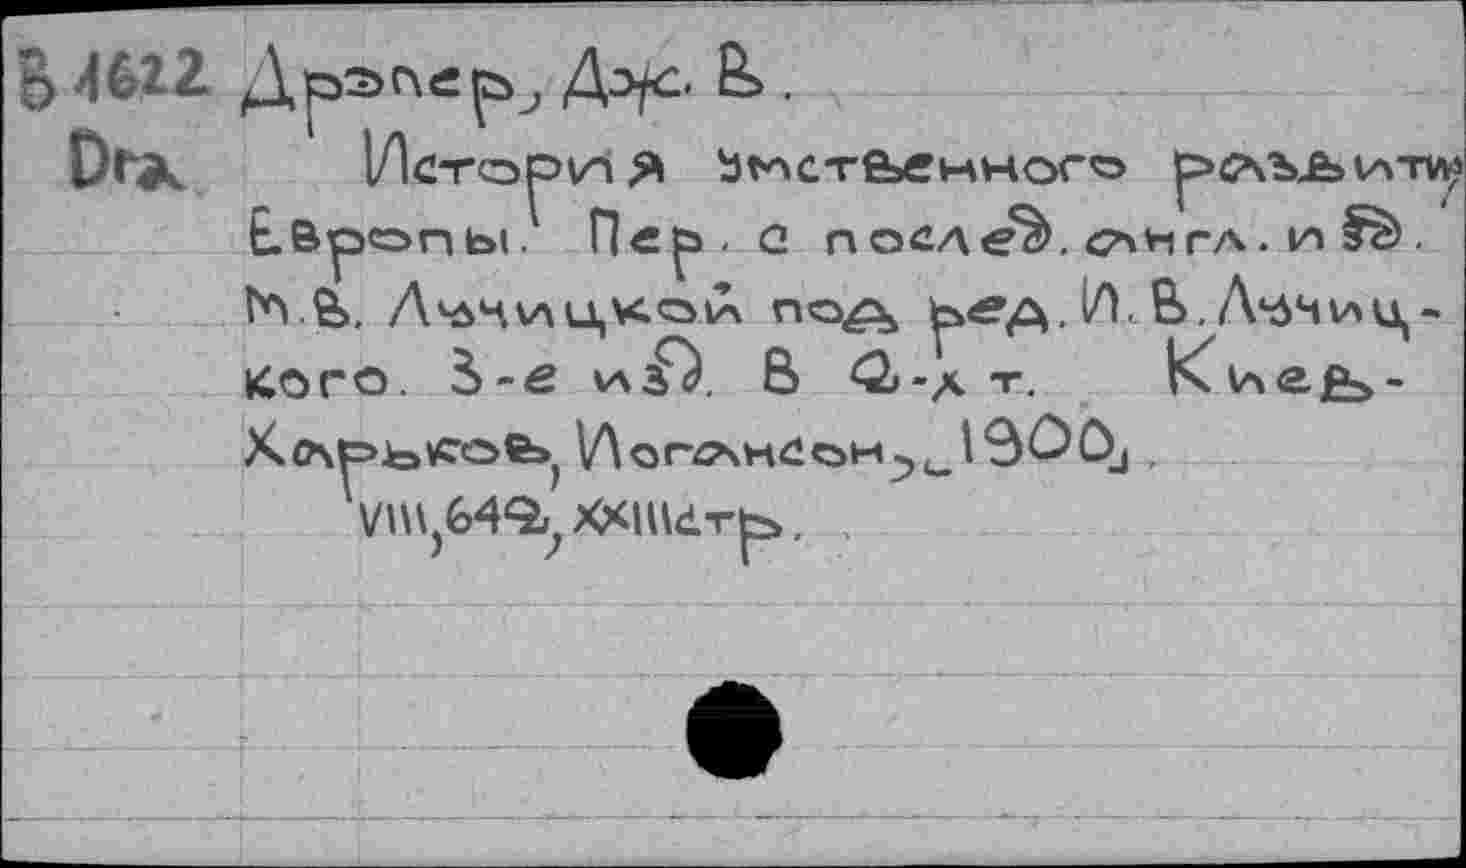 B 1622 Дрэпер, Дж. В.
Dra История умственного развития
Европы. Пер. с послед. англ. изд.
М.В. Лучицкой под ред. И. В. Лучиц-
кого. 3-е изд. В 2-х т. Киев-
Харьков, Иогансон, 1900,
VIII, 642, XXIII стр.